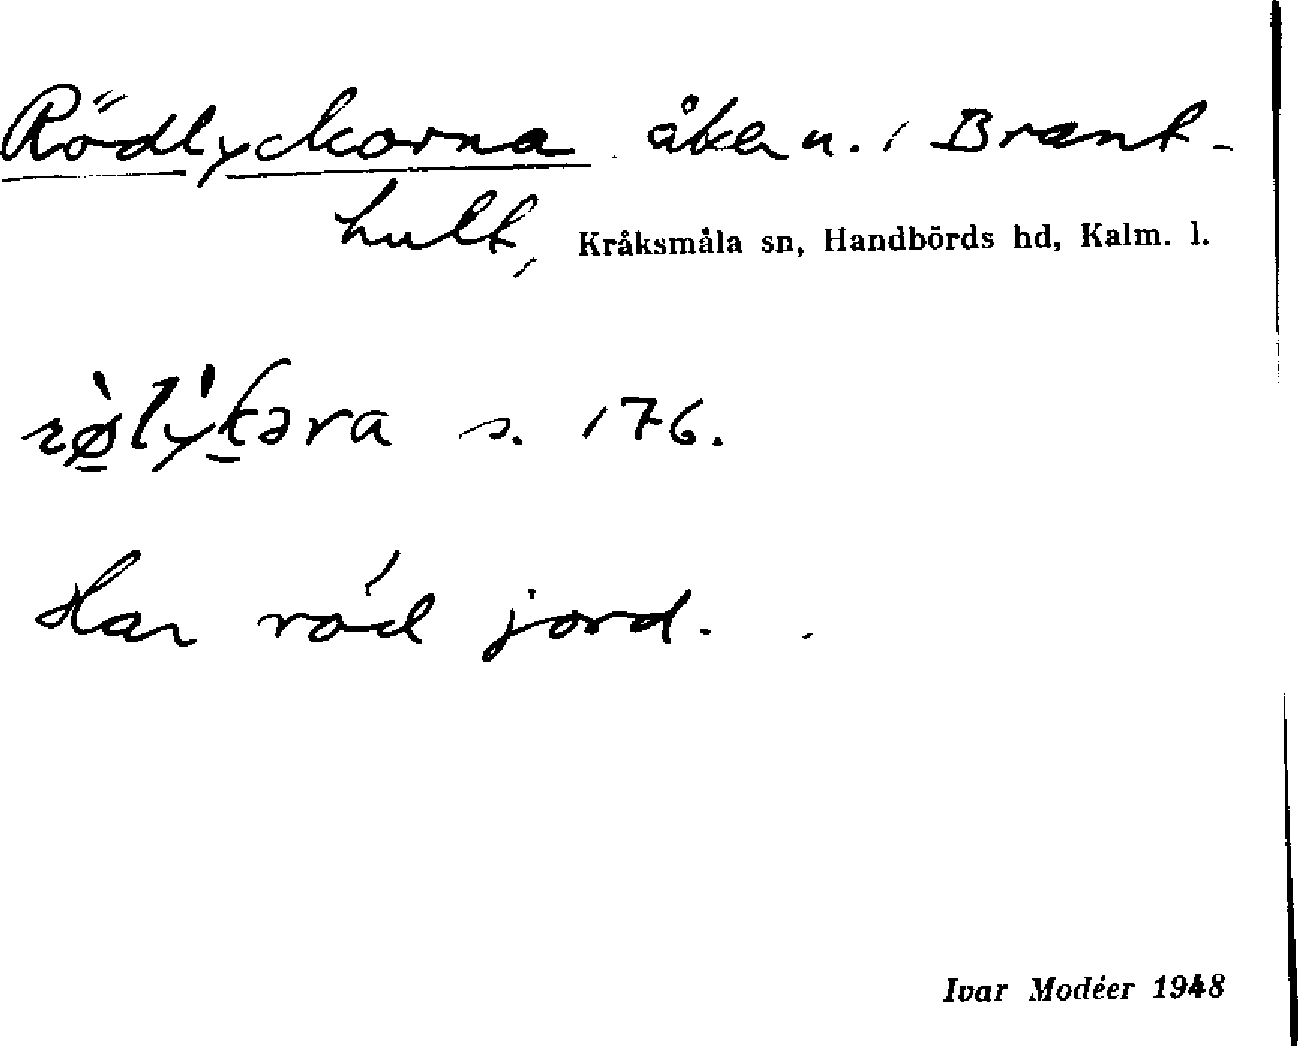 Rödlyckorna åker n. i Brant-
hult, Kråksmåla sn, Handbörds hd, Kalm. l.
s. 176.
Har röd jord.
Ivar Modéer 1948